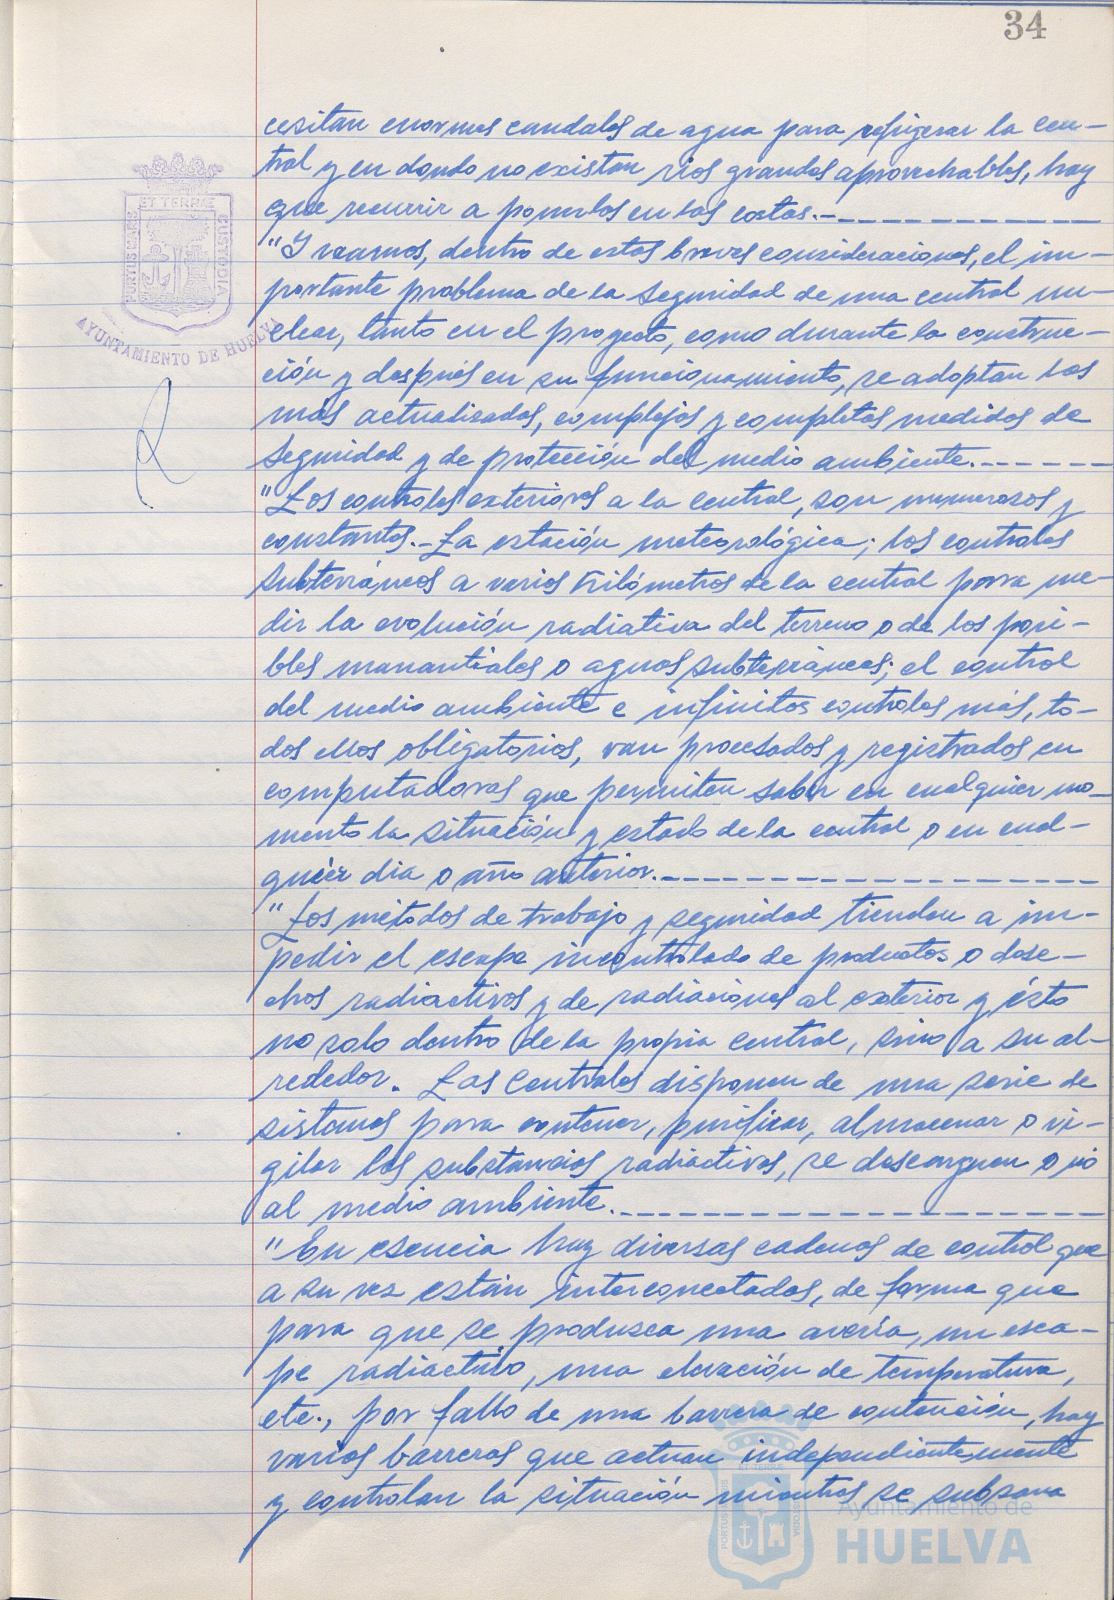 34
cesitan enormes caudales de agua para refrigerar la cen-
tral y en donde no existan rios grandes aprovechables, hay
que recurrir a ponerlos en las costas.-
"Y veamos, dentro de estas breves consideraciones, el im-
portante problema de la seguridad de una central nu-
clear, tanto en el proyecto, como durante la construc-
ción y después en su funcionamiento, se adoptan las
más actualizadas, complejas y completas medidas de
seguridad y de protección del medio ambiente.-
"Los controles exteriores a la central, son numerosos y
constantes.- La estación meteorológica; los controles
subterráneos a varios Kilómetros de la central para me-
dir la evolución radiativa del terreno o de los posi-
bles manantiales o aguas subterráneas; el control
del medio ambiente e infinitos controles más, to-
dos ellos obligatorios, van procesados y registrados en
computadoras que permiten saber en cualquier mo-
mento la situación y estado de la central o en cual-
quier dia o año anterior.-
"Los métodos de trabajo y seguridad tienden a im-
pedir el escape incontrolado de productos o dese-
chos radiactivos y de radiaciones al exterior y ésto
no solo dentro de la propia central, sino a su al-
rededor. Las Centrales disponen de una serie de
sistemas para contener, purificar, almacenar o vi-
gilar las substancias radiactivas, se descarguen o no
al medio ambiente.-
"En esencia hay diversas cadenas de control que
a su vez están interconectadas, de forma que
para que se produzca una avería, un esca-
pe radiactivo, una elevación de temperatura,
etc., por fallo de una barrera de contención, hay
varias barreras que actuan independientemente
y controlan la situación mientras se subsana
PORTUS MARIS
ET TERRAE
CUSTODIA
AYUNTAMIENTO DE HUELVA
PORTUS MARIS
ET TERRAE
CUSTODIA
Ayuntamiento de
HUELVA